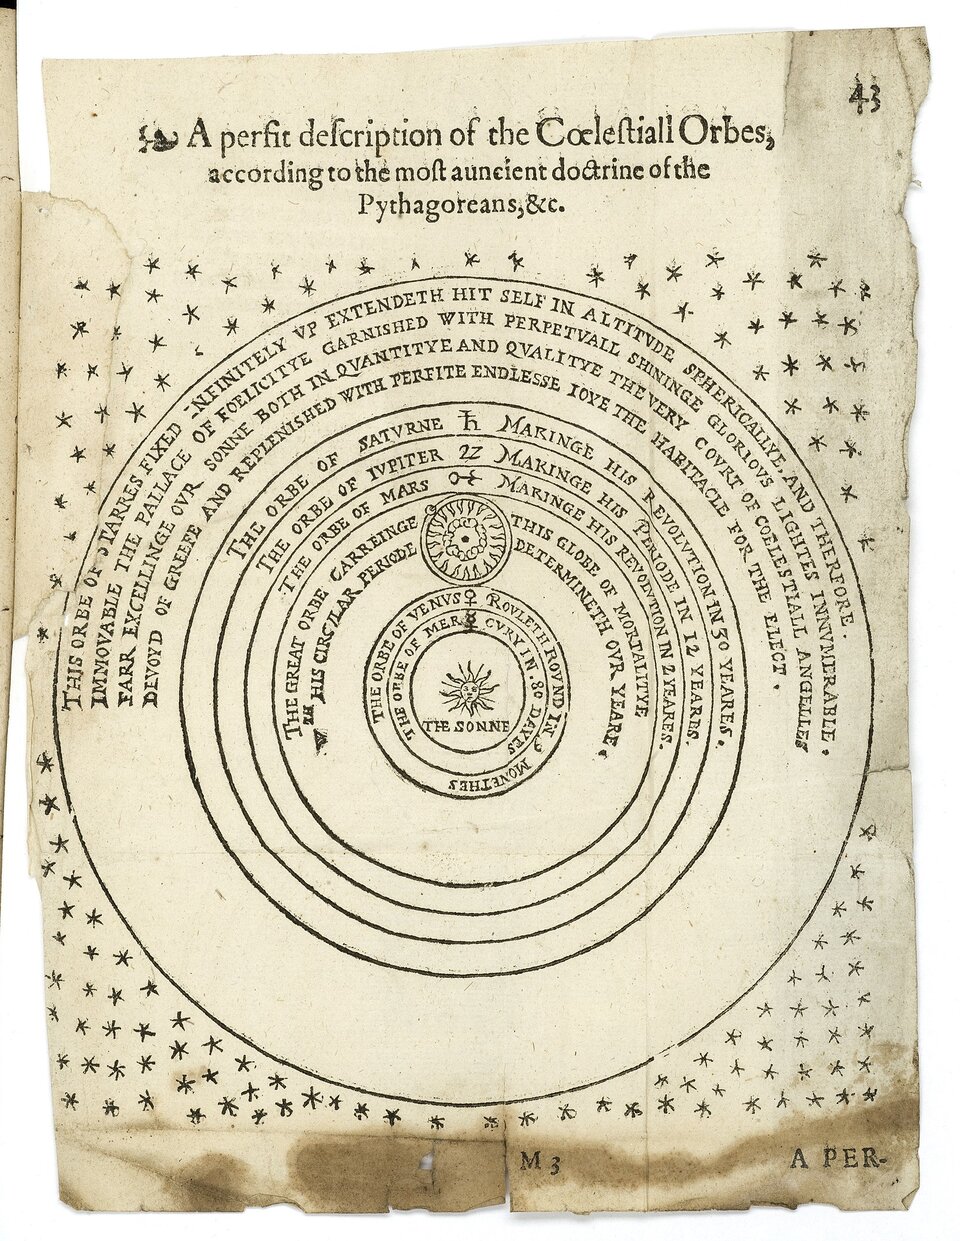 43
A perfit deſcription of the Cœleſtiall Orbes,
according to the moſt auncient doctrine of the
Pythagoreans, &c.
THIS ORBE OF STARRES FIXED INFINITELY VP EXTENDETH HIT SELF IN ALTITVDE SPHERICALLYE, AND THEREFORE.
IMMOVABLE THE PALLACE OF FOELICITYE GARNISHED WITH PERPETVALL SHININGE GLORIOVS LIGHTES INNVMERABLE.
FARR EXCELLINGE OVR SONNE BOTH IN QVANTITYE AND QVALITYE THE VERY COVRT OF COELESTIALL ANGELLES
DEVOYD OF GREEFE AND REPLENISHED WITH PERFITE ENDLESSE IOYE THE HABITACLE FOR THE ELECT.
THE ORBE OF SATVRNE ♄ MAKINGE HIS REVOLVTION IN 30 YEARES.
THE ORBE OF IVPITER ♃ MAKINGE HIS PERIODE IN 12 YEARES.
THE ORBE OF MARS ♂ MAKINGE HIS REVOLVTION IN 2 YEARES.
THE GREAT ORBE CARREINGE THIS GLOBE OF MORTALITYE
HIS CIRCVLAR PERIODE DETERMINETH OVR YEARE.
WTH
THE ORBE OF VENVS ♀ ROVLETH ROVND IN 9 MONETHES
THE ORBE OF MER☿CVRY IN 80 DAYES
THE SONNE
M 3
A PER-